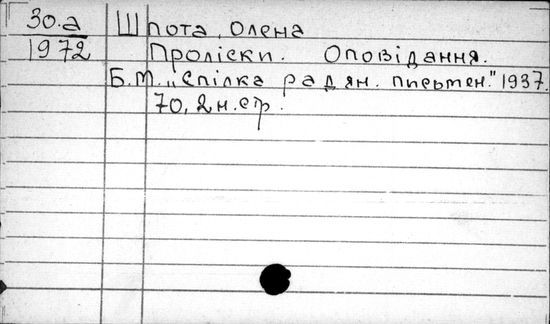 30.а
1972
Шпота, Олена
Проліски. Оповідання.
Б.М. „Спілка радян. письмен." 1937.
70, 2 н. стр.